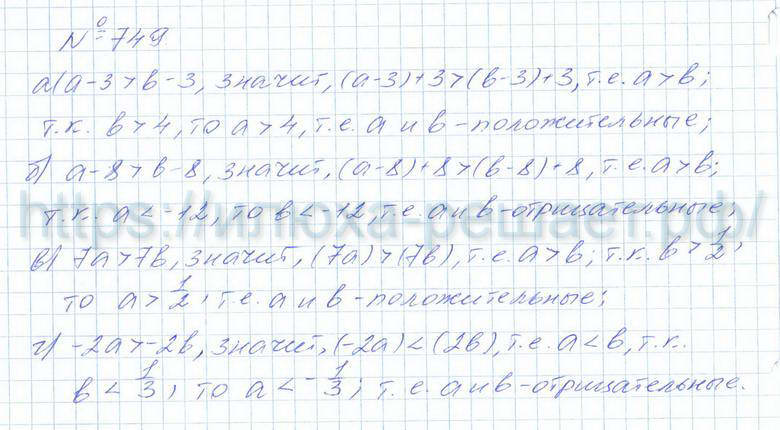 № 749
а) a-3>b-3, значит, (a-3)+3>(b-3)+3, т.е. a>b;
т.к. b>4, то a>4, т.е. a и b - положительные;
б) a-8>b-8, значит, (a-8)+8>(b-8)+8, т.е. a>b;
https://илюха-решает.рф/
т.к. a<-12, то b<-12, т.е. a и b - отрицательные;
в) 7a>7b, значит, (7a)>(7b), т.е. a>b; т.к. b>1/2,
то a>1/2, т.е. a и b - положительные;
г) -2a>-2b, значит, (-2a)<(2b), т.е. a<b, т.к.
b<1/3, то a<-1/3; т.е. a и b - отрицательные.